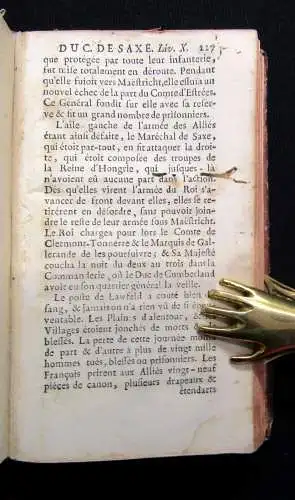 DUC. DE SAXE. Liv. X. 227
que protégée par toute leur infanterie,
fut mise totalement en déroute. Pendant
qu'elle fuioit vers Maëstricht, elle essuia un
nouvel échec de la part du Comte d'Estrées.
Ce Général fondit sur elle avec sa reser-
ve & fit un grand nombre de prisonniers.
L'aile gauche de l'armée des Alliés
étant ainsi défaite, le Maréchal de Saxe,
qui étoit par-tout, en fit attaquer la droi-
te, qui étoit composée des troupes de
la Reine d'Hongrie, qui jusques-là
n'avoient eû aucune part dans l'action.
Dès qu'elles virent l'armée du Roi s'a-
vancer de front devant elles, elles se re-
tirérent en désordre, sans pouvoir joindre
le reste de leur armée sous Mastricht.
Le Roi chargea pour lors le Comte de
Clermont-Tonnerre & le Marquis de Gal-
lerande de les poursuivre; & Sa Majesté
coucha la nuit du deux au trois dans la
Commanderie, où le Duc de Cumberland
avoit eu son quartier général la veille.
Le poste de Lawfeld a couté bien du
sang, & jamais on n'a rien vû de si épou-
ventable. Les Plaines d'alentour, & les
Villages étoient jonchés de morts & de
blessés. La perte de cette journée monta
de part & d'autre à plus de vingt mille
hommes tués, blessés ou prisonniers. Les
François prirent aux Alliés vingt-neuf
piéces de canon, plusieurs drapeaux &
étendarts